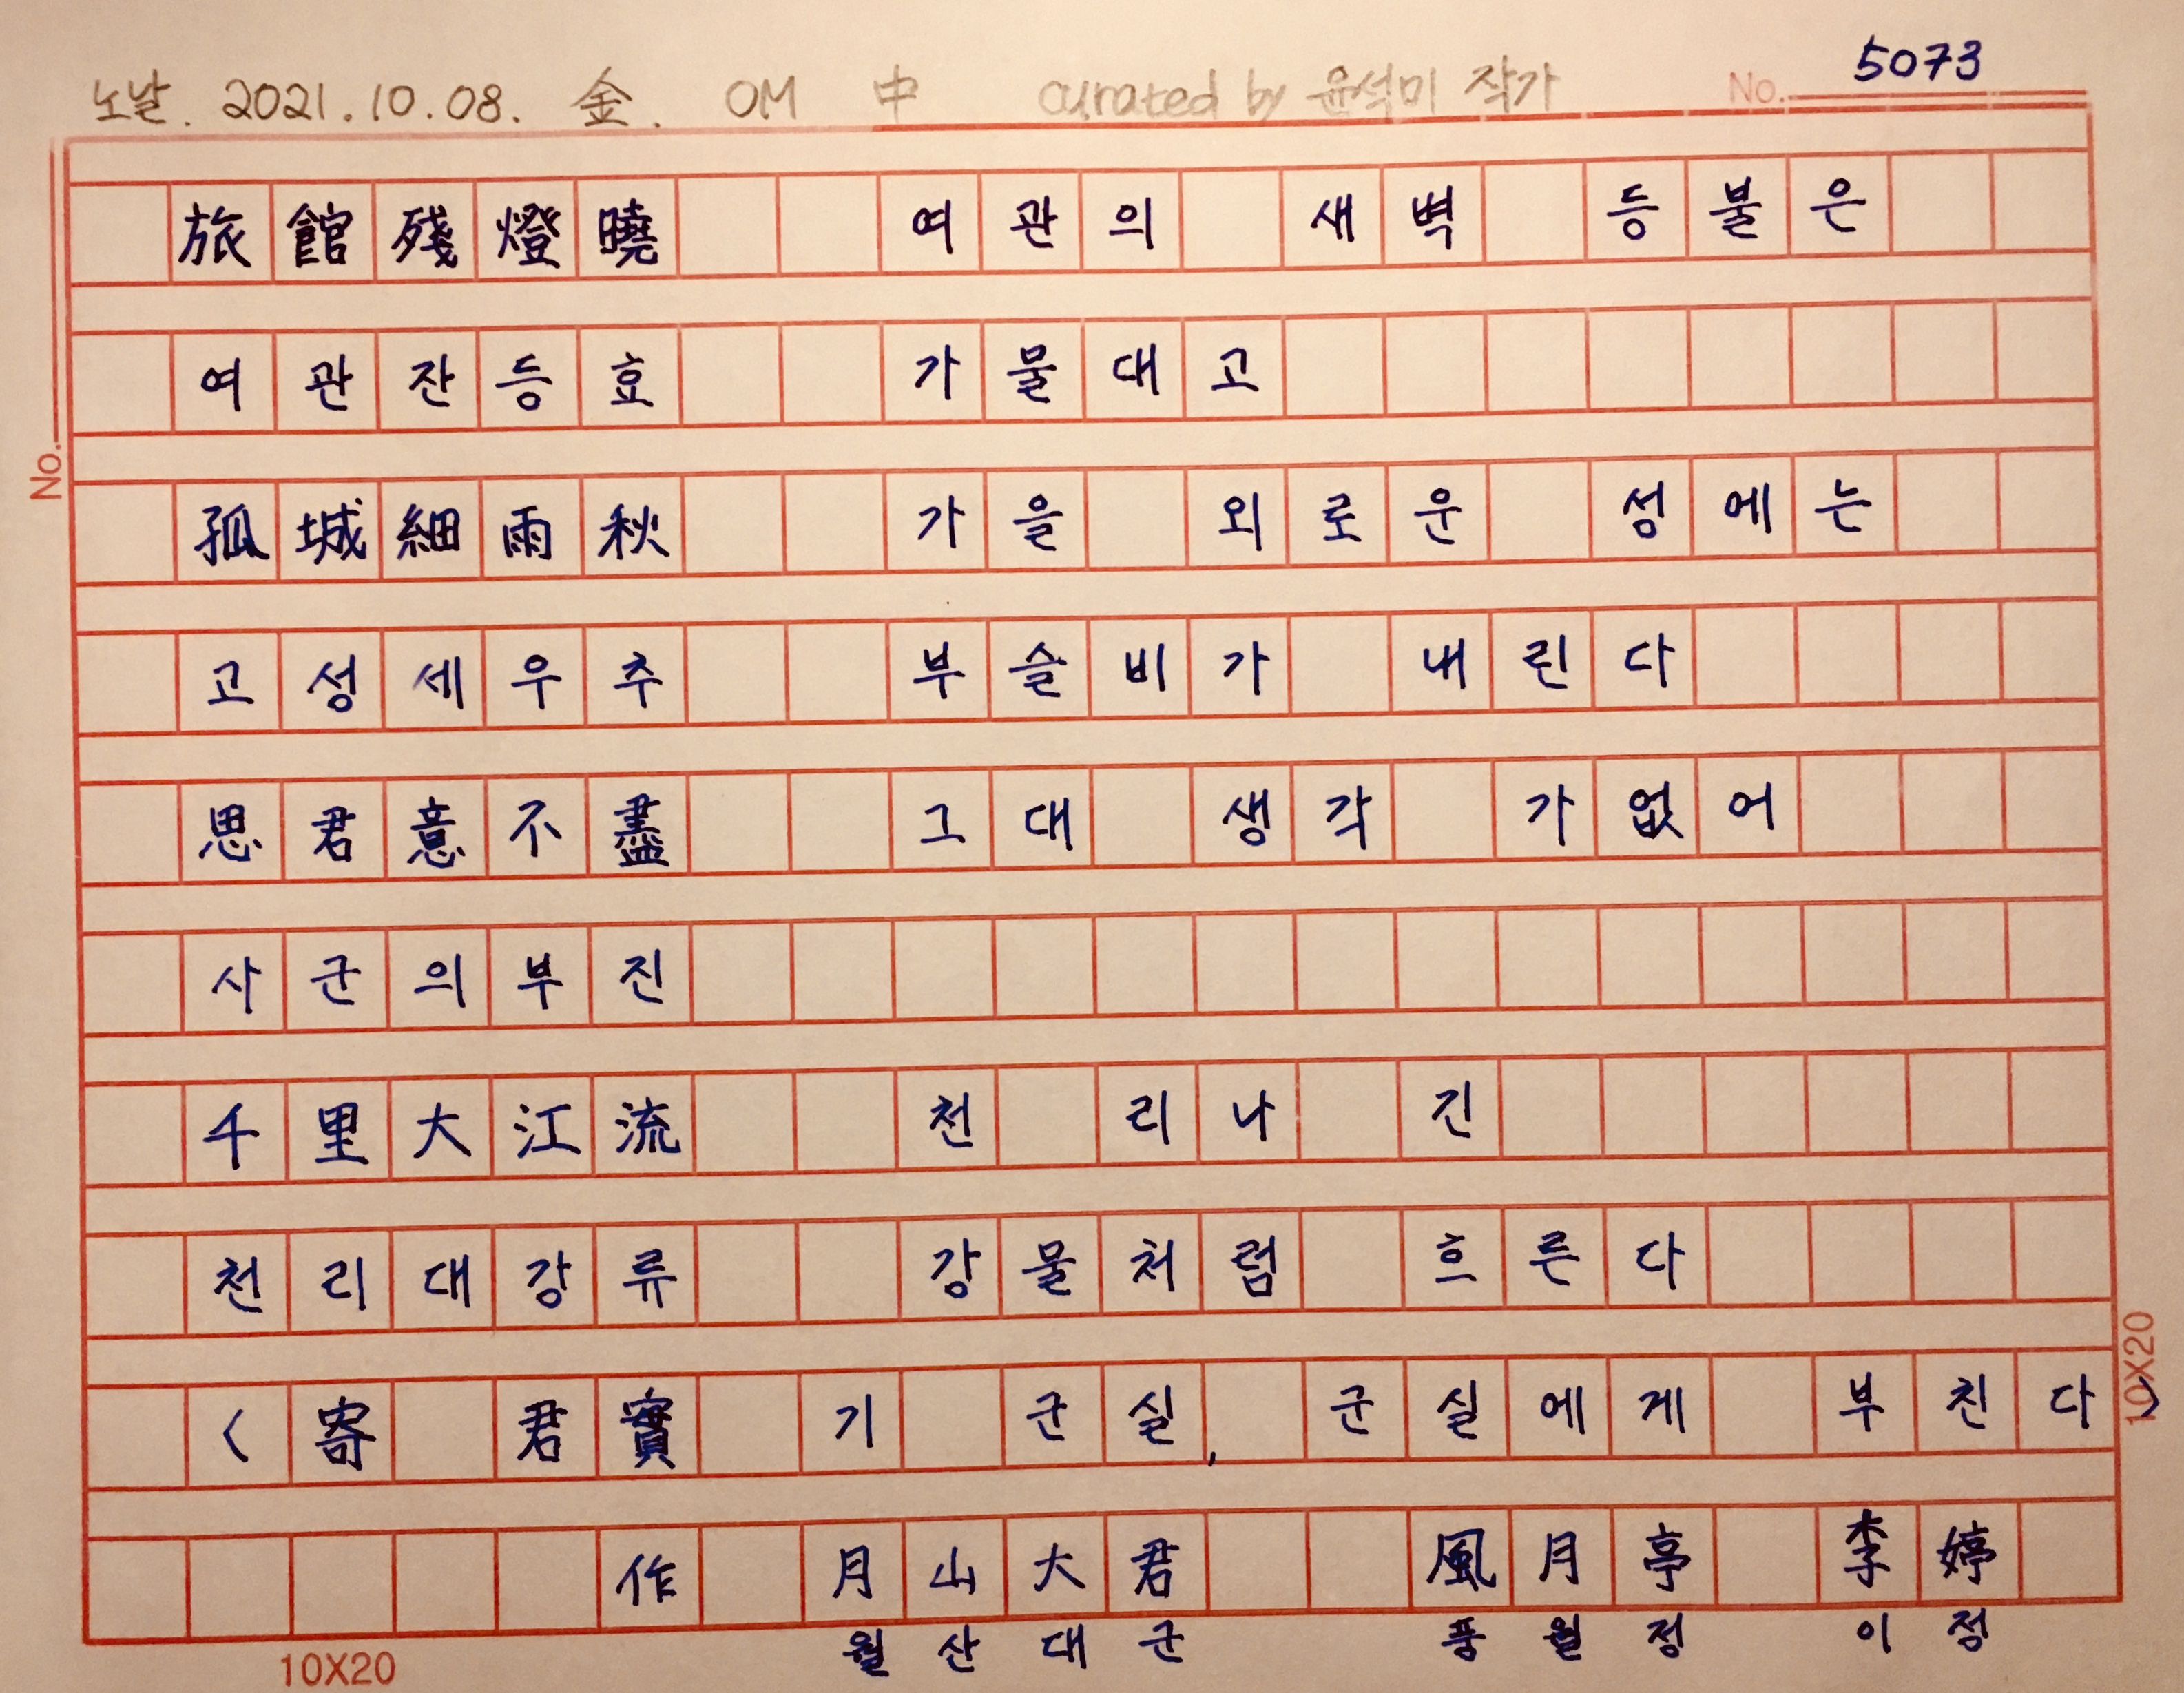 노날. 2021.10.08. 金. OM 中 curated by 윤석미 작가 No. 5073
旅館殘燈曉 여관의 새벽 등불은
여관잔등효 가물대고
No.
孤城細雨秋 가을 외로운 성에는
고성세우추 부슬비가 내린다
思君意不盡 그대 생각 가없어
사군의부진
千里大江流 천 리나 긴
천리대강류 강물처럼 흐른다
<寄 君實 기 군실, 군실에게 부친다>
作 月山大君 風月亭 李婷
월산대군 풍월정 이정
10X20
10X20